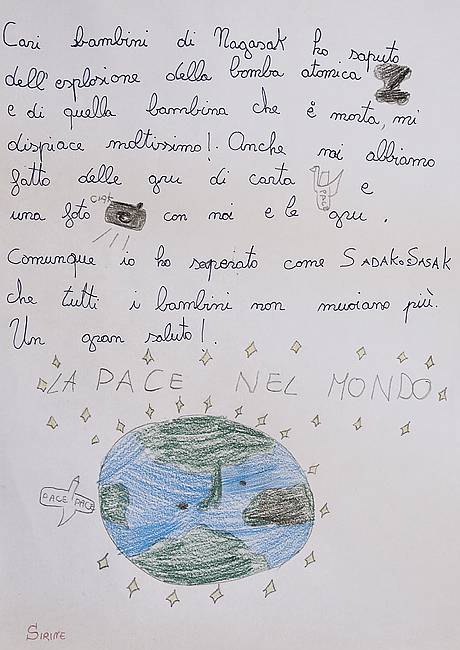 Cari bambini di Nagasak ho saputo
dell'esplosione della bomba atomica
e di quella bambina che è morta, mi
dispiace moltissimo! Anche noi abbiamo
fatto delle gru di carta e
una foto CIAK con noi e le gru.
Comunque io ho seperato come SADAKO SASAK
che tutti i bambini non muoiano più.
Un gran saluto!
LA PACE NEL MONDO
PACE PACE
SIRINE